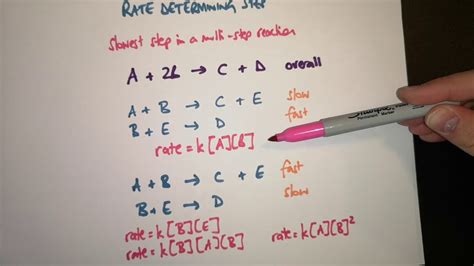 RATE DETERMINING STEP
Slowest step in a multi-step reaction
A + 2B → C + D overall
A + B → C + E slow
B + E → D fast
rate = k[A][B]
A + B → C + E fast
B + E → D slow
rate = k[B][E]
rate = k[B][A][B] rate = k[A][B]²
Sharpie
Permanent Marker